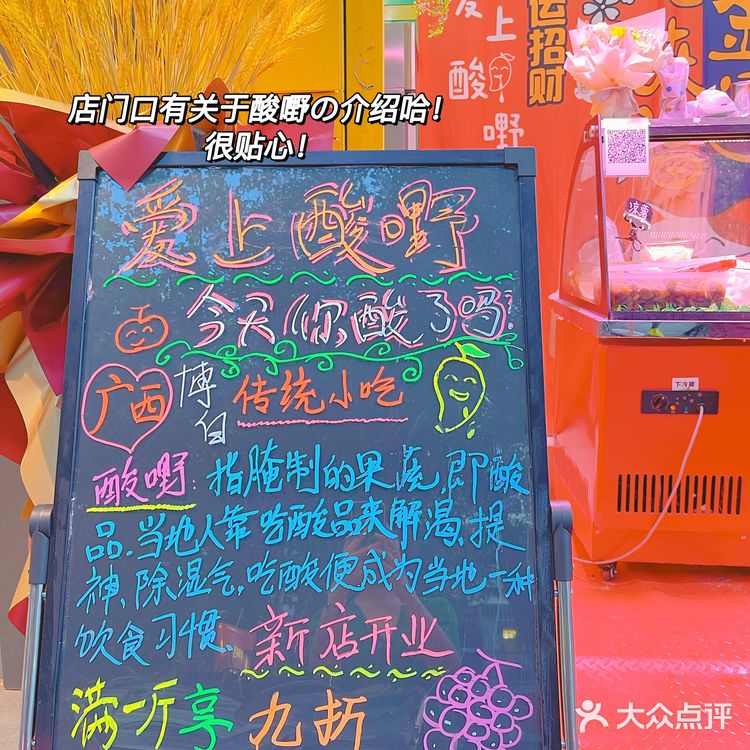 店门口有关于酸嘢の介绍哈！
很贴心！
爱上酸嘢
今天你酸了吗？
广西
博白
传统小吃
酸嘢：指腌制的果蔬，即酸
品、当地人靠吃酸品来解渴、提
神、除湿气，吃酸便成为当地一种
饮食习惯。
新店开业
满一斤享 九折
爱上酸嘢
运招财
凉露
下冷藏
大众点评